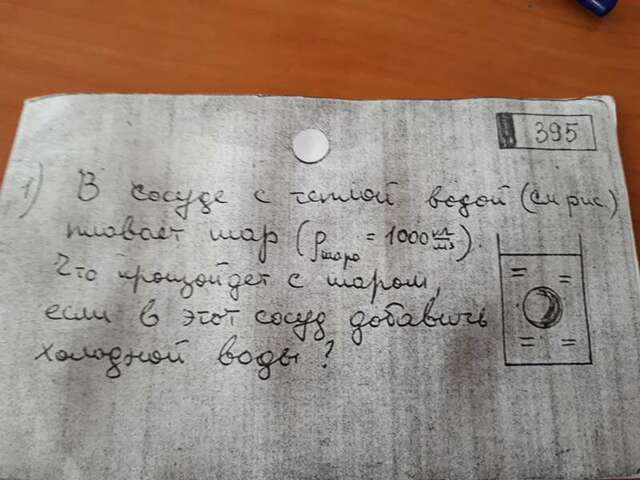 395
1) В сосуде с теплой водой (см рис)
плавает шар (ρшара = 1000 кг/м³).
Что произойдет с шаром,
если в этот сосуд добавить
холодной воды?